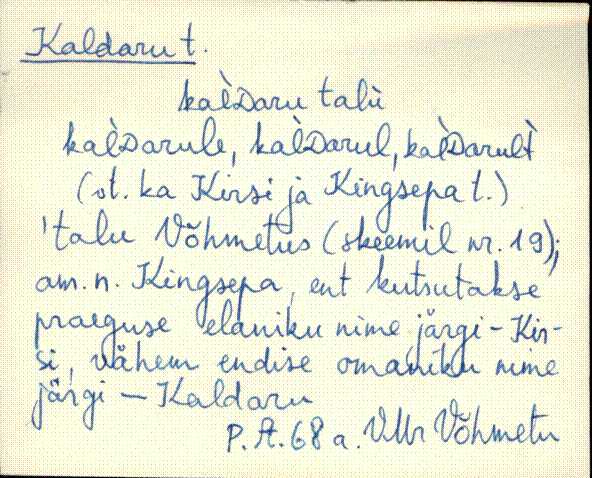 Kaldaru t.
kal̀Daru talù
kal̀Darule, kal̀Darul, kal̀Darult̀
(vt. ka Kirsi ja Kingsepa t.)
'talu Võhmetus (skeemil nr. 19);
am. n. Kingsepa, ent kutsutakse
praeguse elaniku nime järgi - Kir-
si, vähem endise omaniku nime
järgi - Kaldaru
P. A. 68 a. VMr Võhmetu